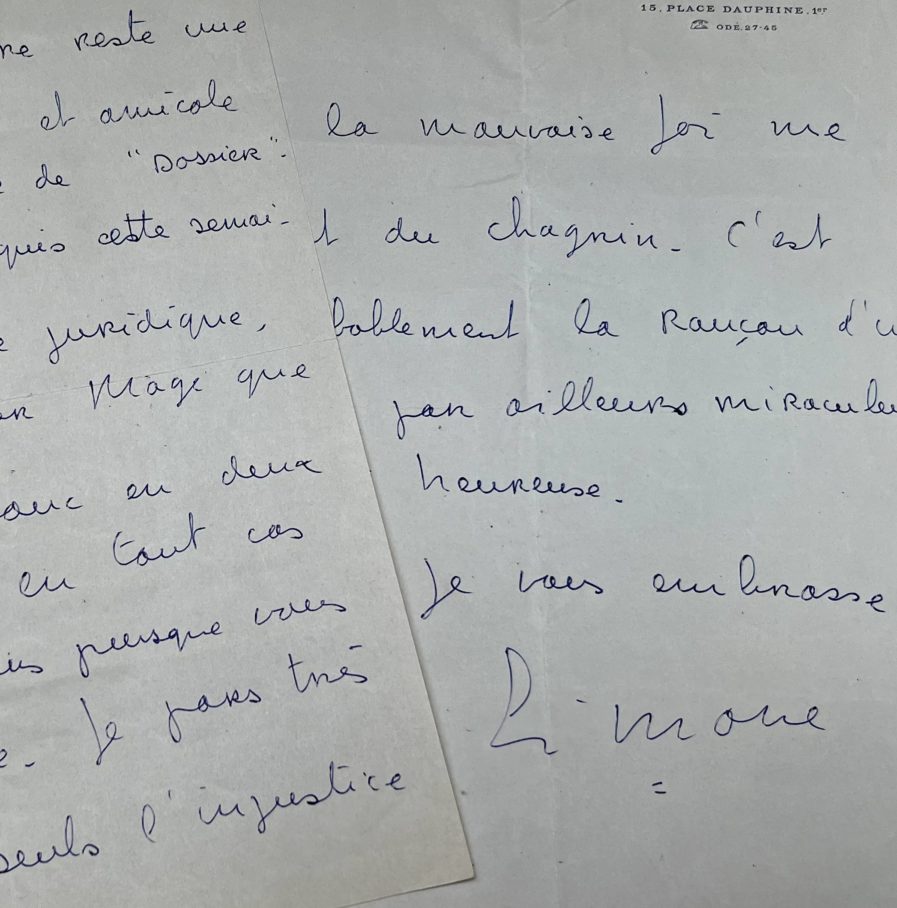 reste une
et amicale
de "Dossier".
cette semai-
juridique,
Mage que
en deux
en tout cas
puisque vous
Je pars très
seuls l'injustice
15, PLACE DAUPHINE, 1er
☎ ODÉ. 27-45
la mauvaise foi me
t du chagrin. C'est
bablement la rançon d'u
par ailleurs miracule
heureuse.
Je vous embrasse
Simone